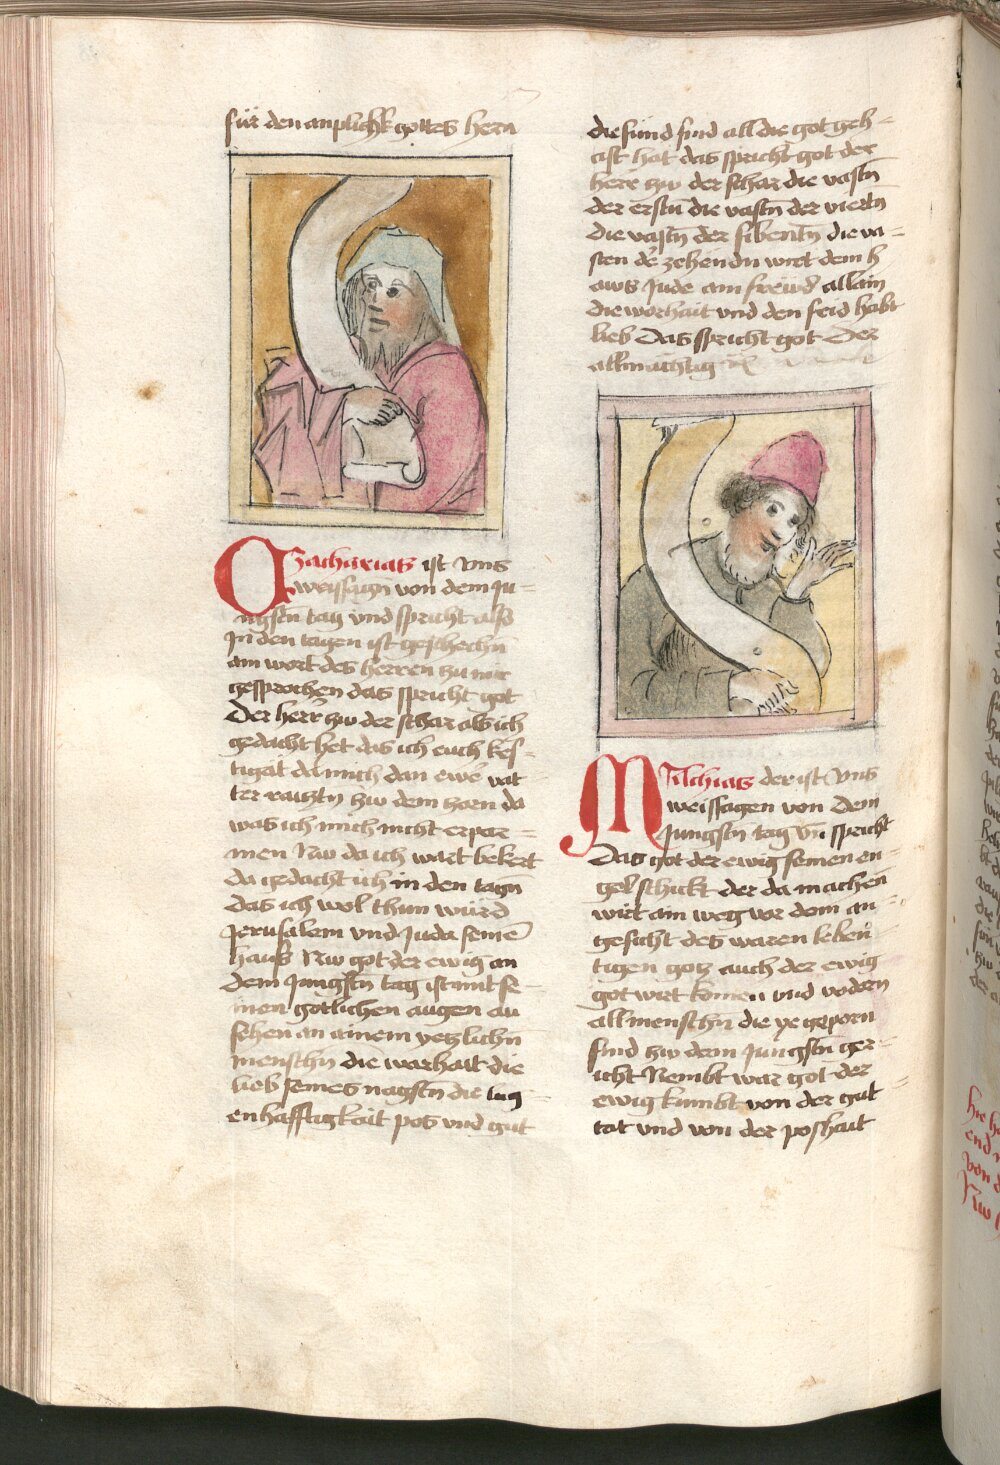 für den anplickh gottes hern
Zacharias ist vns
weissagn von dem Ju=
ngstn tag vnd spricht also
In den tagen ist geschechn
am wort des herren zu mir
gesprochen das spricht got
Der herr zw der schar als ich
gedacht het das ich euch kes=
tigat da mich dan ewr vat
ter raiztn zw dem zorn da
was ich mich nicht erpar=
men Nw da ich wart bekert
da gedacht ich in den tagn
das ich wol thun würd
Jerusalem vnd Juda seinē
hauß Nw got der ewig an
dem Jungstn tag ist mit se=
inen götlichen augen an
sehen an ainem yetzlichn
menschn die warhait die
lieb seines nagstn die lug=
enhafftigkait pos vnd gut
die sünd sind all die got geh=
ast hat das spricht got der
herr zw der schar die vastn
der erstn die vastn der vierdn
die vastn der sibentn die va=
sten der zehendn wirt dem h
aws Jude am freüd allain
die worhait vnd den frid habt
lieb Das spricht got Der
allmächtig
Milchias der ist vns
weissagen von dem
Jungstn tag vn spricht
Das got der ewig seinen en=
gel schickt der da machen
wirt ain weg vor dem an=
gesicht des waren leben
tigen gotz auch der ewig
got wirt komen vnd vodern
all menschn die ye geporn
sind zw dem Jungstn ger=
icht Nembt war got der
ewig kumbt von der gut
tat vnd von der poshait